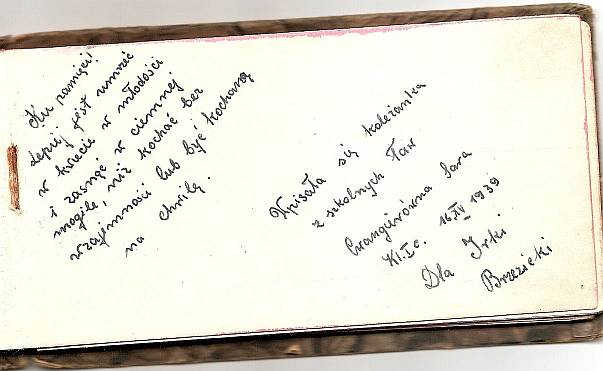 Ku pamięci!
Lepiej jest umrzeć
w kwiecie w młodości
i zasnąć w ciemnej
mogile, niż kochać bez
wzajemności lub być kochaną
na chwilę.
Wpisała się koleżanka
z szkolnych ław
Sara
Kl. I c. 16.IV 1939
Dla Irki
Brzezicki